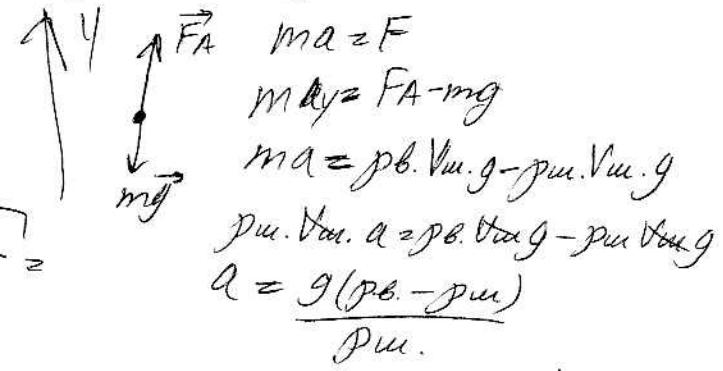 y F⃗A ma = F
may = FA - mg
ma = ρв. Vш. g - ρш. Vш. g
mg⃗
ρш. Vш. a = ρв. Vш g - ρш Vш g
=
a = g(ρв. - ρш)
ρш.